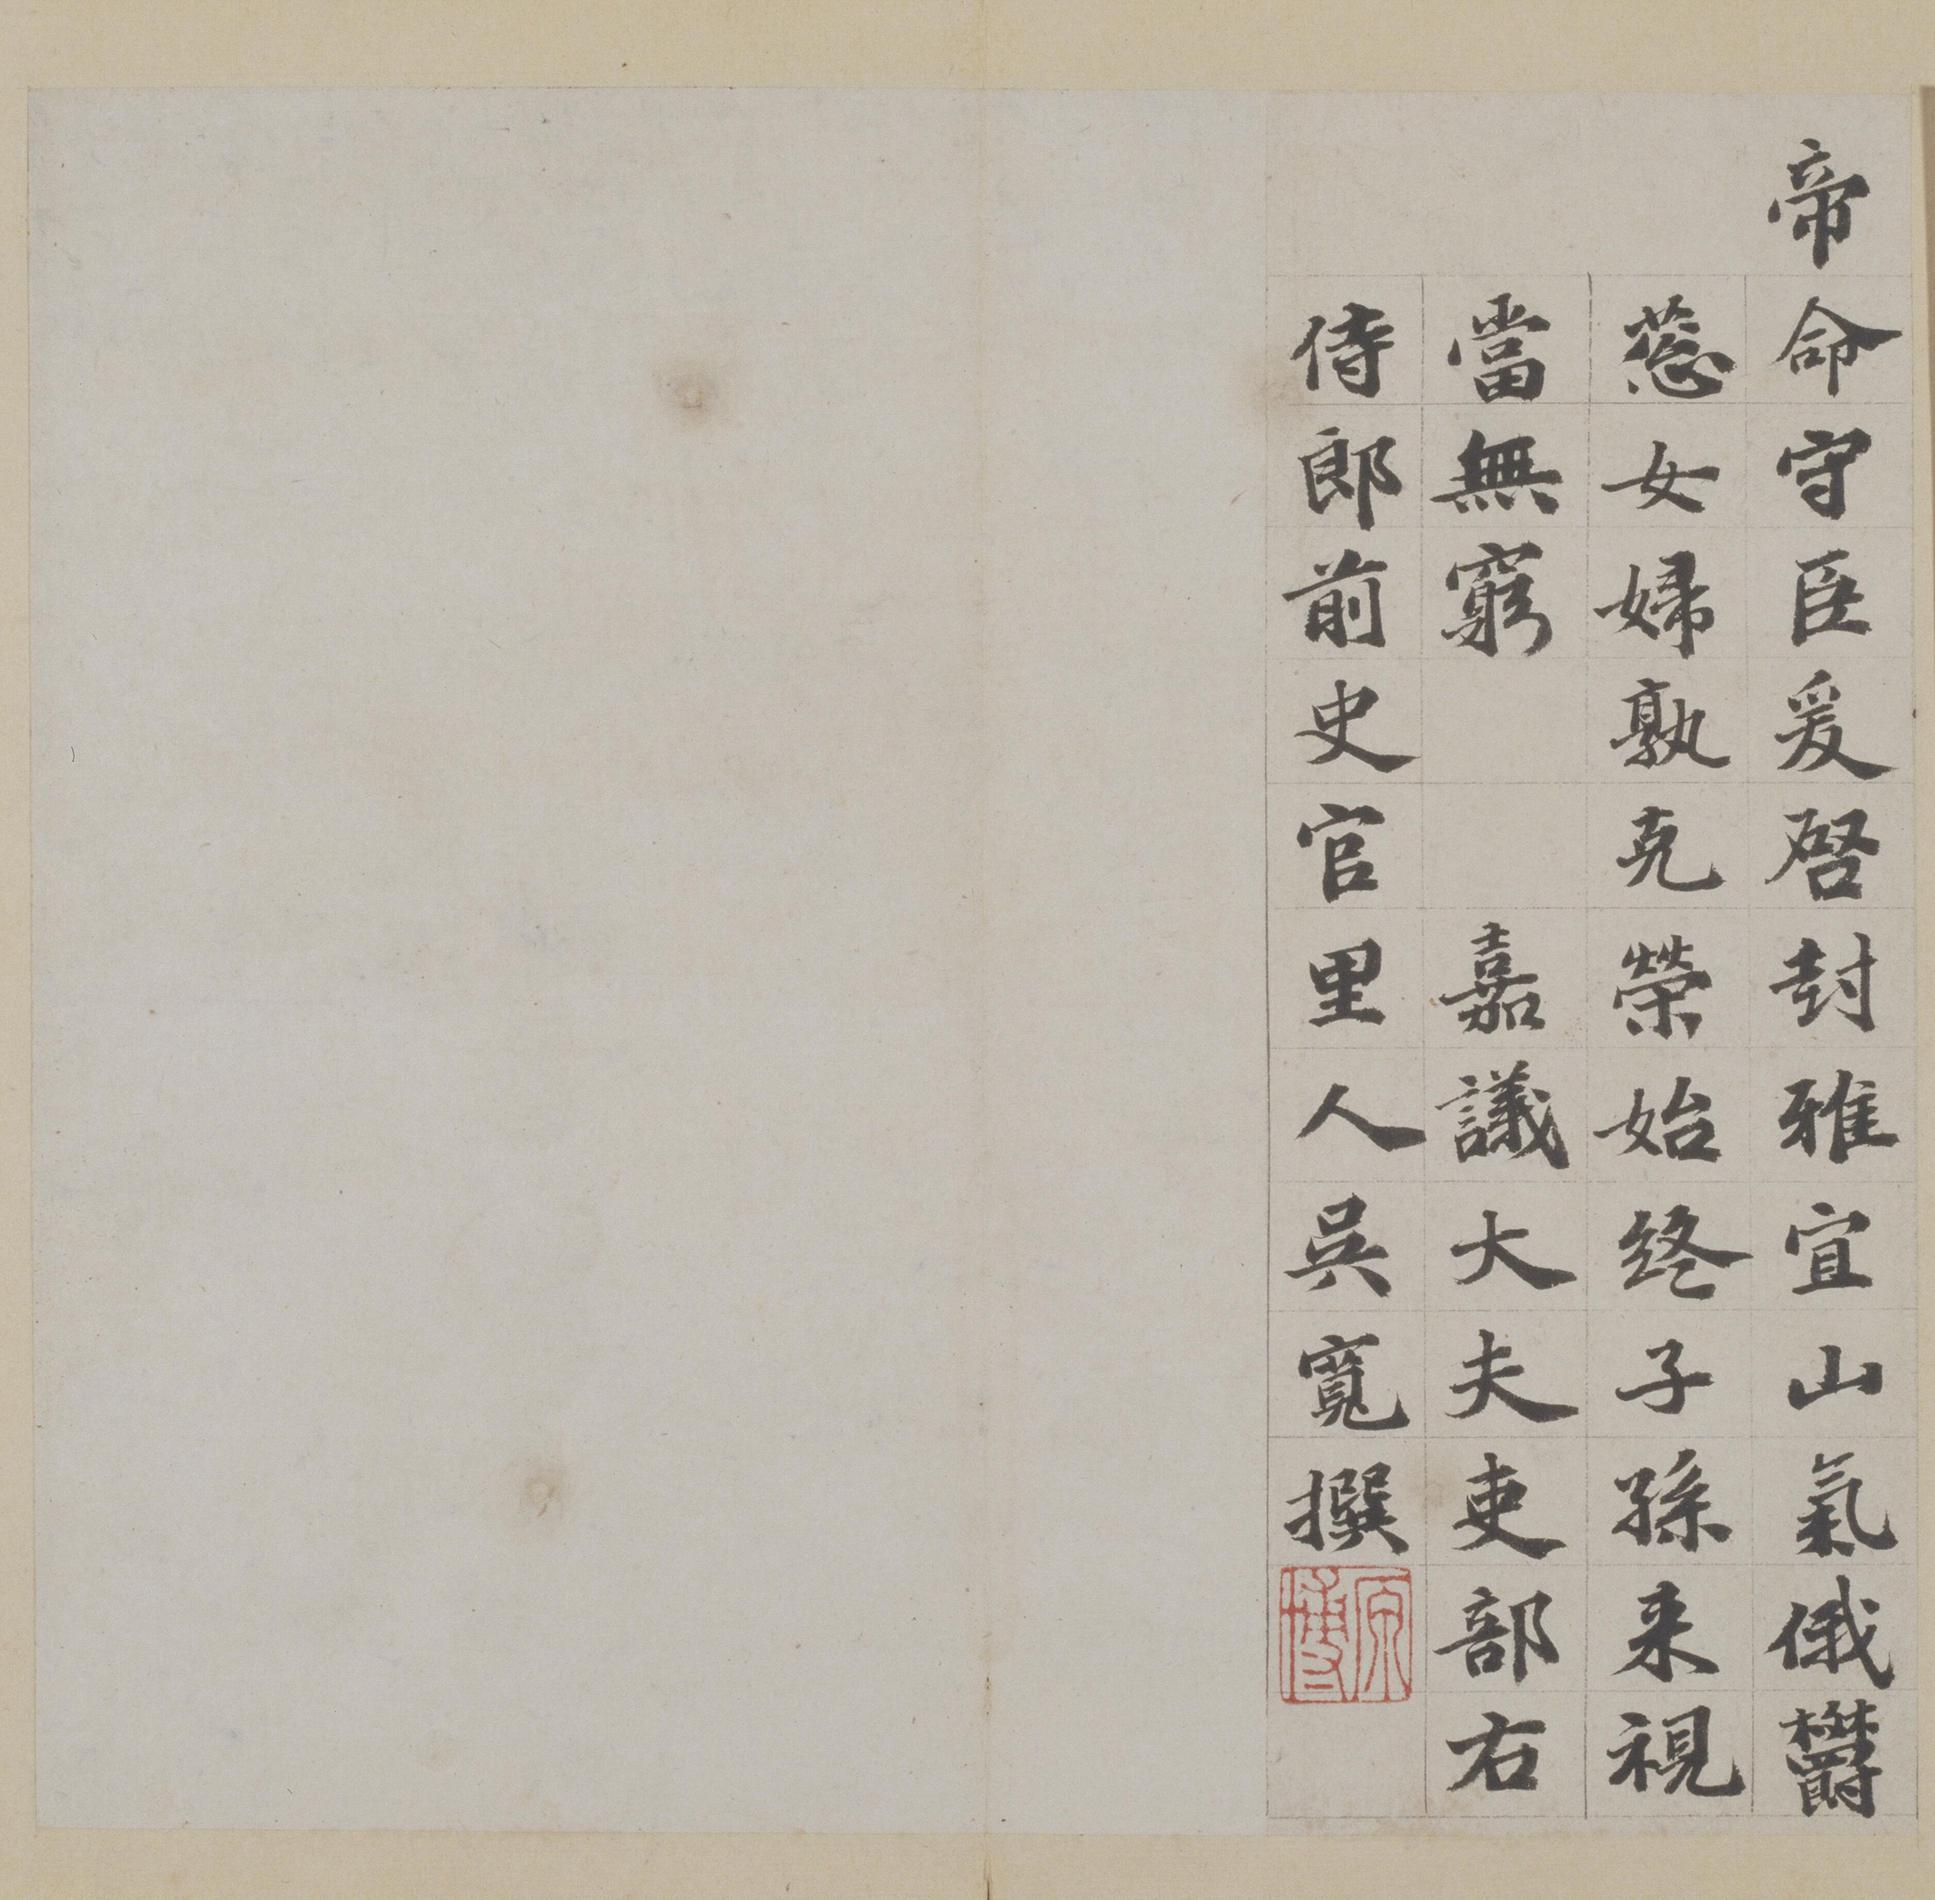 帝命守臣爰啓封雅宜山氣俄鬱
葱女婦孰克榮始終子孫来視
當無窮　　嘉議大夫吏部右
侍郎前史官里人吳寬撰
原博